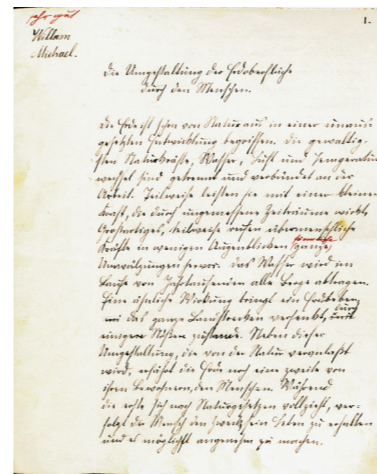 sehr gut
1.
Willam
Michael.
Die Umgestaltung der Erdoberfläche
durch den Menschen.
Die Erde ist schon von Natur aus in einer unaus-
gesetzten Entwicklung begriffen. Die gewaltig-
sten Naturkräfte, Wasser, Luft und Temperatur-
wechsel sind getrennt und verbündet an der
Arbeit. Teilweise leisten sie mit einer kleinen
Kraft, die durch ungemessene Zeiträume wirkt,
Großartiges, teilweise rufen übermenschliche
Kräfte in wenigen Augenblicken ganze
Umwälzungen hervor. Das Wasser wird im
Laufe von Jahrtausenden alle Berge abtragen.
Eine ähnliche Wirkung bringt ein Erdbeben,
das ganze Landstrecken versenkt, durch
einigen Stößen zustande. Neben dieser
Umgestaltung, die von der Natur veranlaßt
wird, erfährt die Erde noch eine zweite von
ihren Bewohnern, den Menschen. Während
die erste sich nach Naturgesetzen vollzieht, ver-
folgt der Mensch den Zweck, sein Leben zu erhalten
und es möglichst angenehm zu machen.